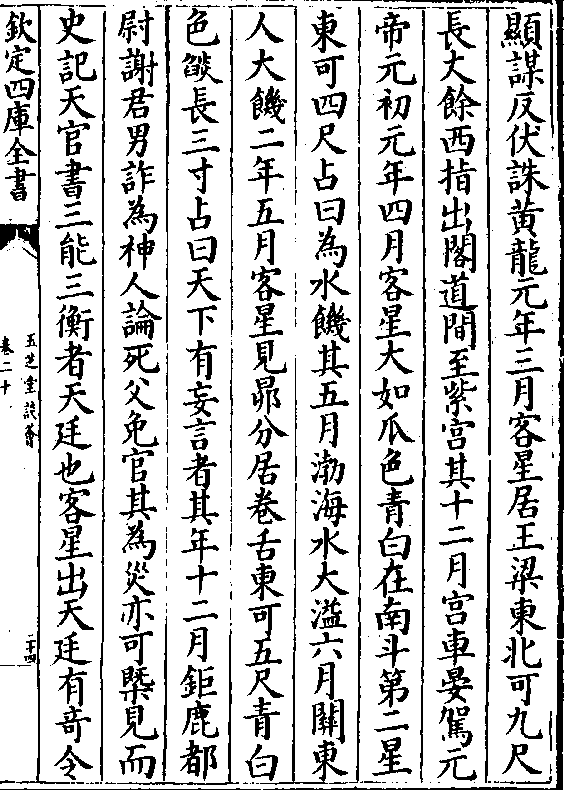 顯謀反伏誅黄龍元年三月客星居王梁東北可九尺
長大餘西指出閣道間至紫宫其十二月宫車晏駕元
帝元初元年四月客星大如爪色青白在南斗第二星
東可四尺占曰為水饑其五月渤海水大溢六月關東
人大饑二年五月客星見昴分居卷舌東可五尺青白
色燄長三寸占曰天下有妄言者其年十二月鉅鹿都
尉謝君男詐為神人論死父免官其為災亦可槩見而
史記天官書三能三衡者天廷也客星出天廷有竒令
欽定四庫全書
五芝堂談薈
卷二十
二十四